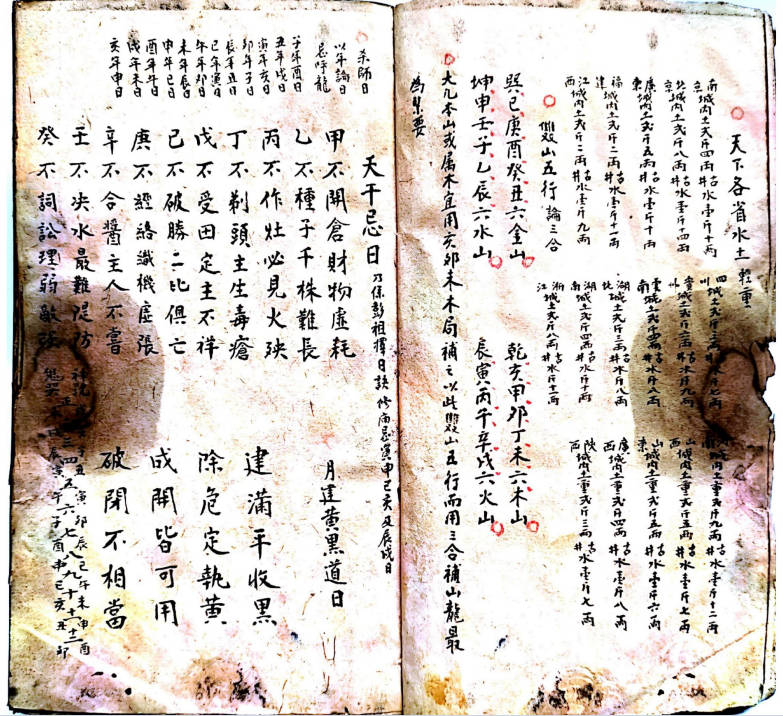 天下各省水土輕重
南京城內土弍斤四兩古井水壹斤十兩
北京城內土弍斤八兩古井水壹斤十四兩
廣東城內土弍斤五兩古井水壹斤十兩
福建城內土弍斤二兩古井水壹斤十一兩
江西城內土弍斤二兩古井水壹斤九兩
四川城土弍斤二兩古井水斤七兩
貴州城土弍斤二兩古井水斤九兩
雲南城土弍斤四兩古井水斤八兩
湖北城土弍斤三兩古井水斤八兩
湖南城土弍斤四兩古井水斤十兩
浙江城土弍斤八兩古井水斤十三兩
南城內土重弍斤九兩古井水壹斤十二兩
山西城內土重弍斤五兩古井水壹斤七兩
山東城內土重弍斤五兩古井水壹斤六兩
廣西城內土重弍斤四兩古井水壹斤八兩
陝西城內土重弍斤三兩古井水壹斤七兩
雙山五行論三合
巽巳庚酉癸丑六金山 乾亥甲卯丁未六木山
坤申壬子乙辰六水山 辰寅丙午辛戌六火山
大凡本山或属木宜用亥卯未木局補之以此雙山五行而用三合補山龍最
為緊要
杀師日
以年論日
忌呼龍
子年酉日
丑年戌日
寅年亥日
卯年子日
辰年丑日
巳年寅日
午年卯日
未年辰日
申年巳日
酉年午日
戌年未日
亥年申日
天干忌日乃係彭祖擇日訣修廟忌寅申巳亥及辰戌日
甲不開倉財物虛耗
乙不種子千株難長
丙不作灶必見火殃
丁不剃頭主生毒瘡
戊不受田定主不祥
己不破勝二比俱亡
庚不經絡織機虛張
辛不合醬主人不嘗
壬不決水最難隄防
癸不詞訟理弱敵強
月建黃黑道日
建滿平收黑
除危定執黃
成開皆可用
破閉不相當
正二三四五六七八九十十一十二
丑寅卯辰巳午未申酉
寅午子酉申巳亥丑卯